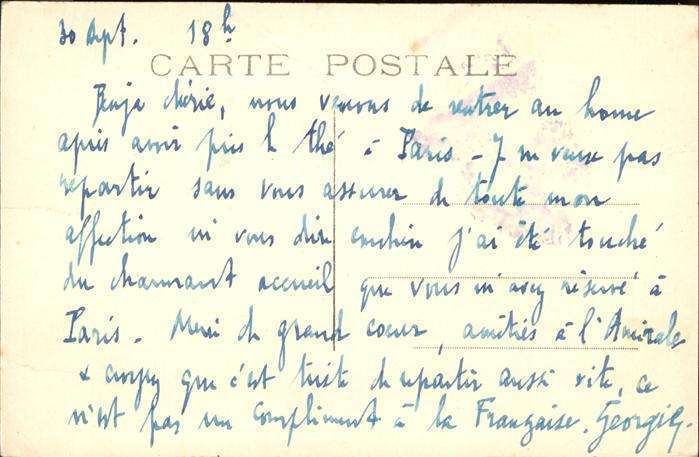 30 Sept. 18h
CARTE POSTALE
chérie, nous venons de rentrer au home
après avoir pris le thé à Paris - Je ne veux pas
repartir sans vous assurer de toute mon
affection ni vous dire combien j'ai été touché
du charmant accueil que vous m'avez réservé à
Paris. Merci de grand coeur, amitiés à l'Amirale
& croyez que c'est triste de repartir aussi vite, ce
n'est pas un compliment à la Française.